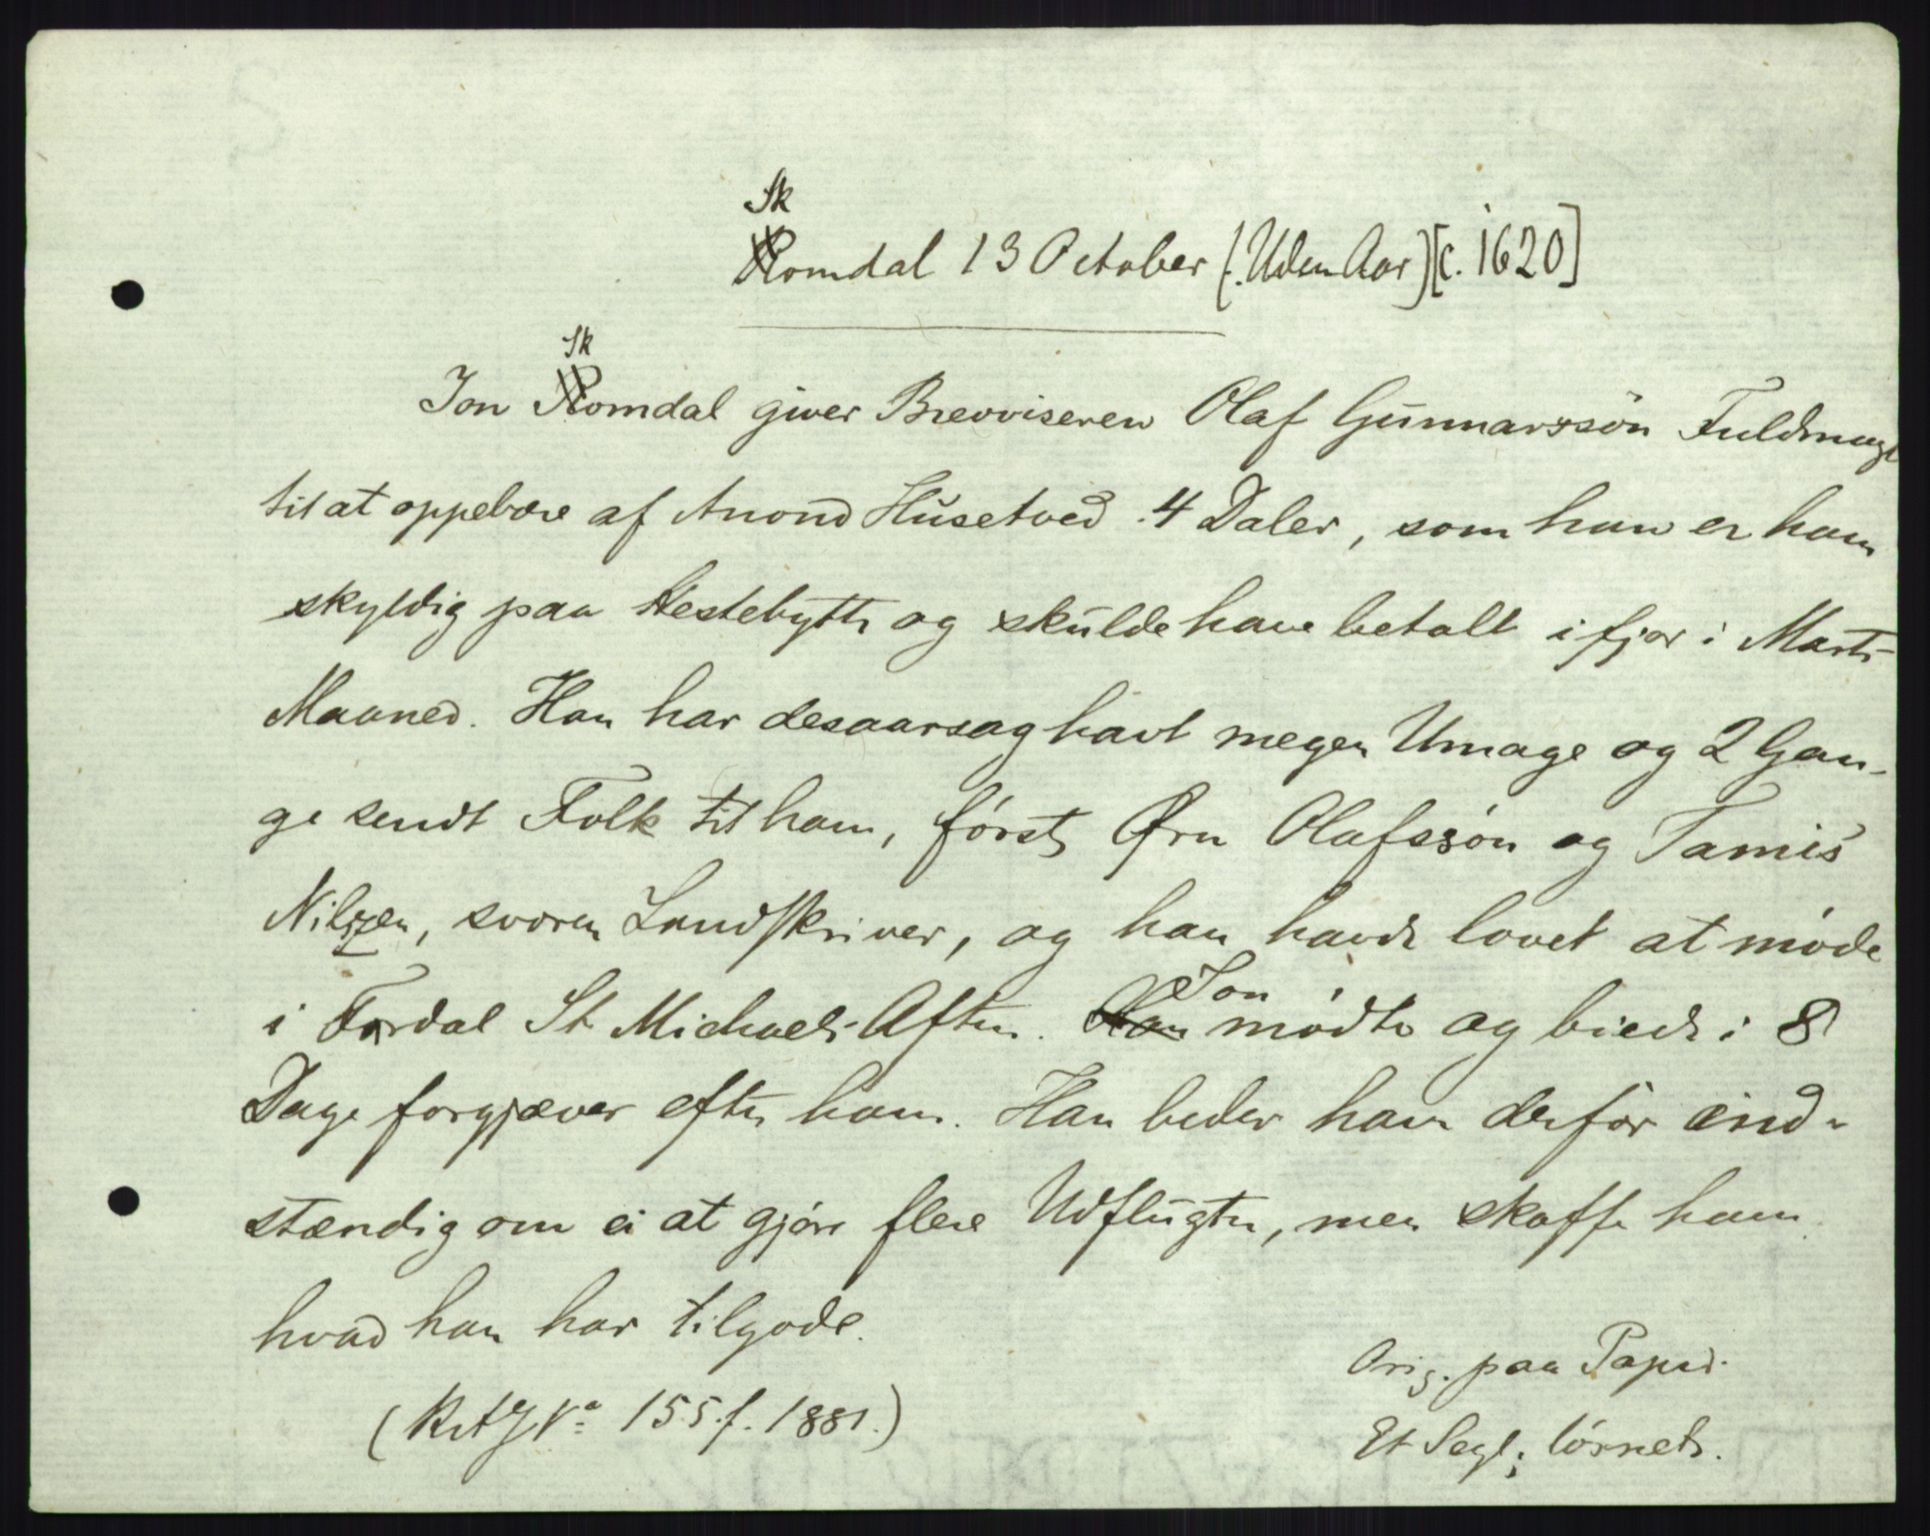 Sk
Romdal 13 October (: Uden Aar) [c. 1620]
Sk
Jon Romdal giver Brevviseren Olaf Gunnarssön Fuldmagt
til at oppebære af Anond Husetved 4 Daler, som han er ham
skyldig paa Hestebytte og skulde have betalt ifjor i Marts
Maaned. Han har desaarsag havt megen Umage og 2 Gan-
ge sendt Folk til ham, først Ørn Olafssön og Tamis
Nilssen, svoren Landskriver, og han havde lovet at møde
i Fordal St Michaels Aften. Jon mødte og biede i 8
Dage forgjæves efter ham. Han beder ham derfor ind-
stændig om ei at gjøre flere Udflugter, men skaffe ham
hvad han har tilgode.
Orig. paa Papir.
(RAJ No 155. f. 1881.)
Et Segl; løsnet.